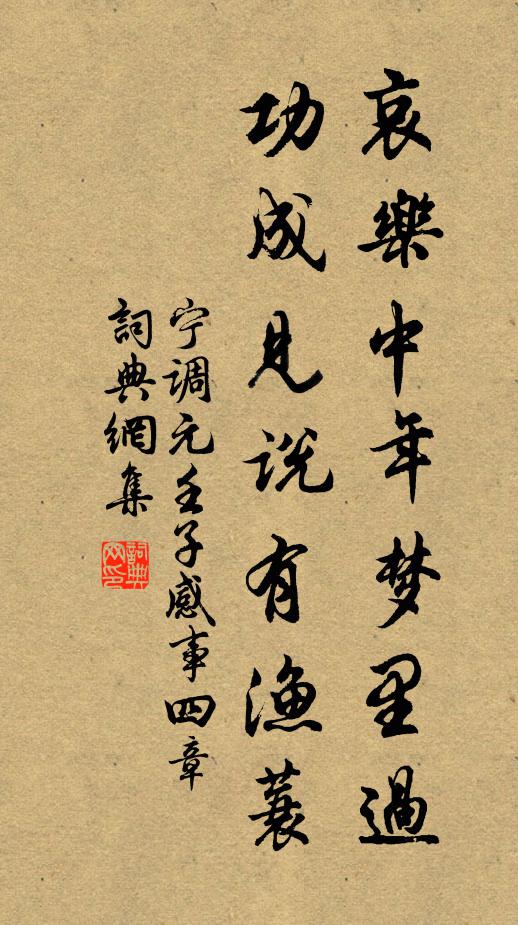 哀樂中年梦里過
功成見说有漁蓑
宁調元壬子感事四章
詞典網集
詞典網印